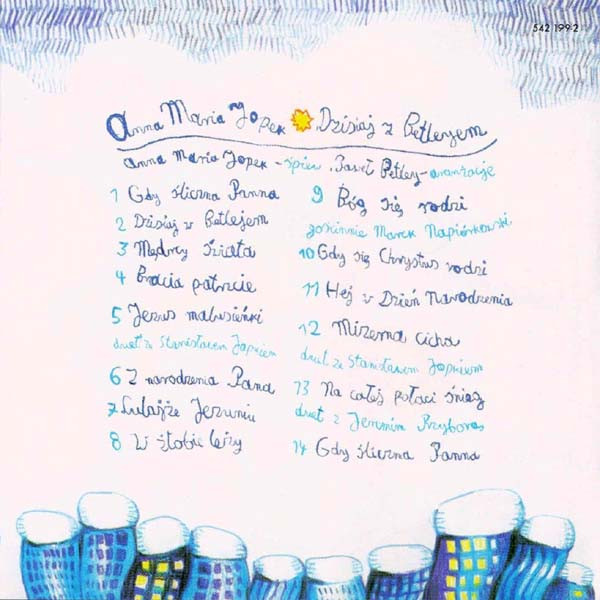 542 199-2
Anna Maria Jopek Dzisiaj z Betleyem
anna Maria Jopek - śpiew, Paweł Betley - aranżacje
1 Gdy śliczna Panna
2 Dzisiaj w Betlejem
3 Mędrcy Świata
4 Bracia patrzcie
5 Jezus malusieńki
duet ze Stanisławem Jopkiem
6 Z narodzenia Pana
7 Lulajże Jezuniu
8 W żłobie leży
9 Bóg się rodzi
gościnnie Marek Napiórkowski
10 Gdy się Chrystus rodzi
11 Hej w Dzień Narodzenia
12 Mizerna cicha
duet ze Stanisławem Jopkiem
13 Na całej połaci śnieg
duet z Jeremim Przyborą
14 Gdy śliczna Panna